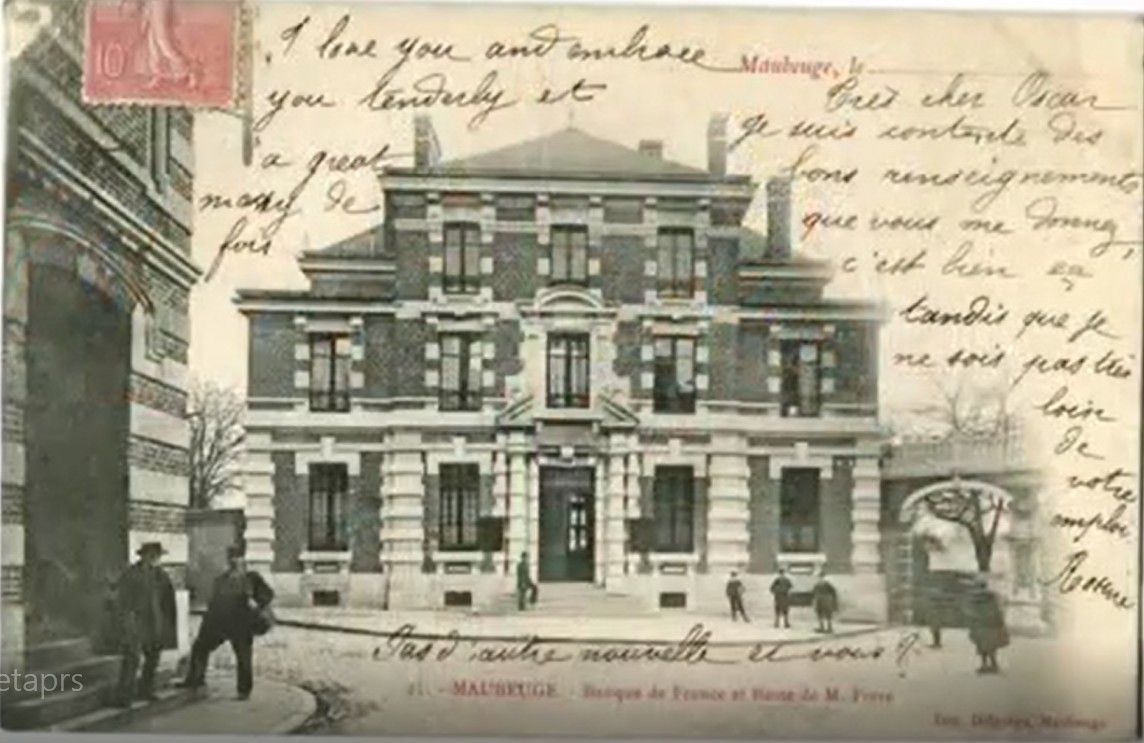 10
I love you and embrace
you tenderly et
a great
many de
fois
Maubeuge, le
Très cher Oscar
je suis contente des
bons renseignements
que vous me donnez,
c'est bien ça
tandis que je
ne sois pas très
loin
de
votre
emploi
Pas d'autre nouvelle et vous ?
21. - MAUBEUGE. - Banque de France et Buste de M.
etaprs
Maubeuge